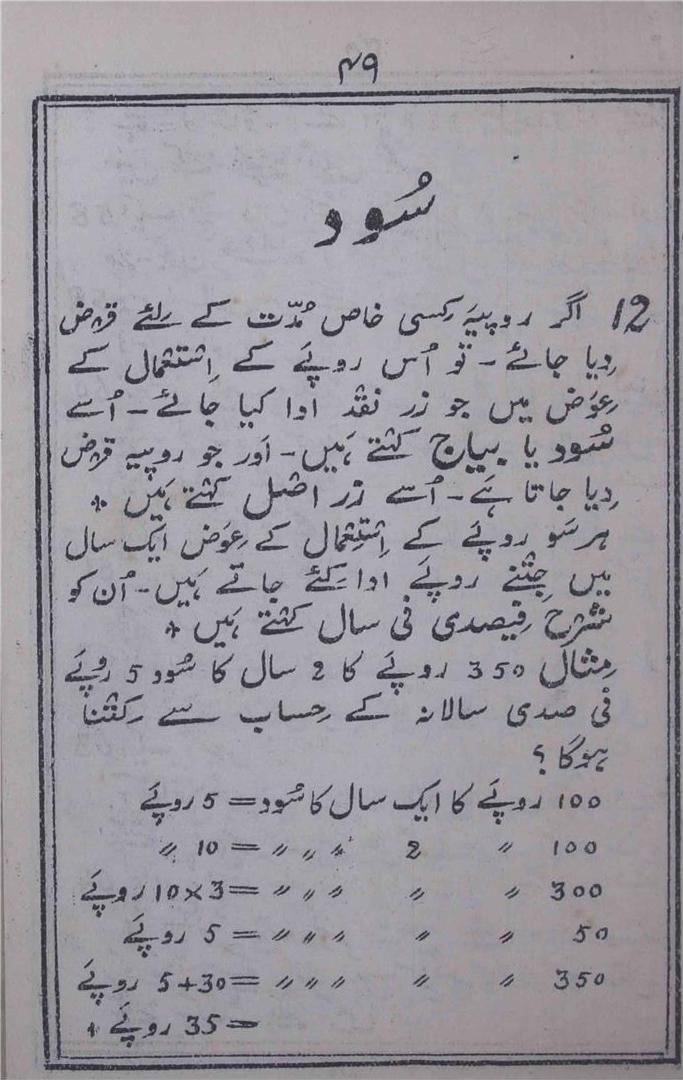 ۴۹
سُود
12 اگر روپیہَ کِسی خاص مُدّت کے لِئے قرض
دِیا جائے - تو اُس روپَے کے اِستعمال کے
عِوَض میں جو زرِ نقد ادا کیا جائے - اُسے
سُود یا بیاج کہتے ہَیں - اَور جو روپیہ قرض
دِیا جاتا ہَے - اُسے زرِ اصل کہتے ہَیں +
ہر سَو روپَے کے اِستِعمال کے عِوَض ایک سال
میں جِتنے روپَے ادا کِئے جاتے ہَیں - اُن کو
شرح فِیصدی فی سال کہتے ہَیں +
مِثال 350 روپَے کا 2 سال کا سُود 5 روپَے
فی صدی سالانہ کے حِساب سے کِتنا
ہوگا ؟
100 روپَے کا ایک سال کا سُود = 5 روپَے
100 〃 2 〃 〃 〃 = 10 〃
300 〃 〃 〃 〃 〃 = 3×10 روپَے
50 〃 〃 〃 〃 〃 = 5 روپَے
350 〃 〃 〃 〃 〃 = 30+5 روپَے
= 35 روپَے +